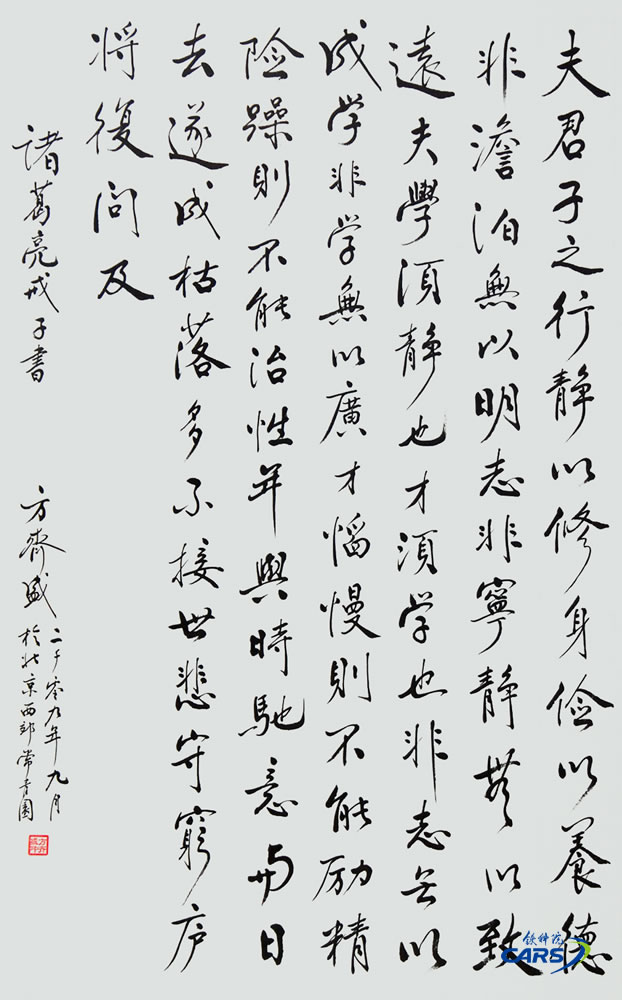 夫君子之行静以修身俭以養德
非澹泊無以明志非寧静無以致
遠夫學須静也才須学也非志无以
成学非学無以廣才慆慢則不能励精
险躁則不能治性年與時馳意与日
去遂成枯落多不接世悲守窮庐
将復問及
諸葛亮戒子書
方齊盛
二千零九年九月
於北京西郊常青園
铁科院
CARS